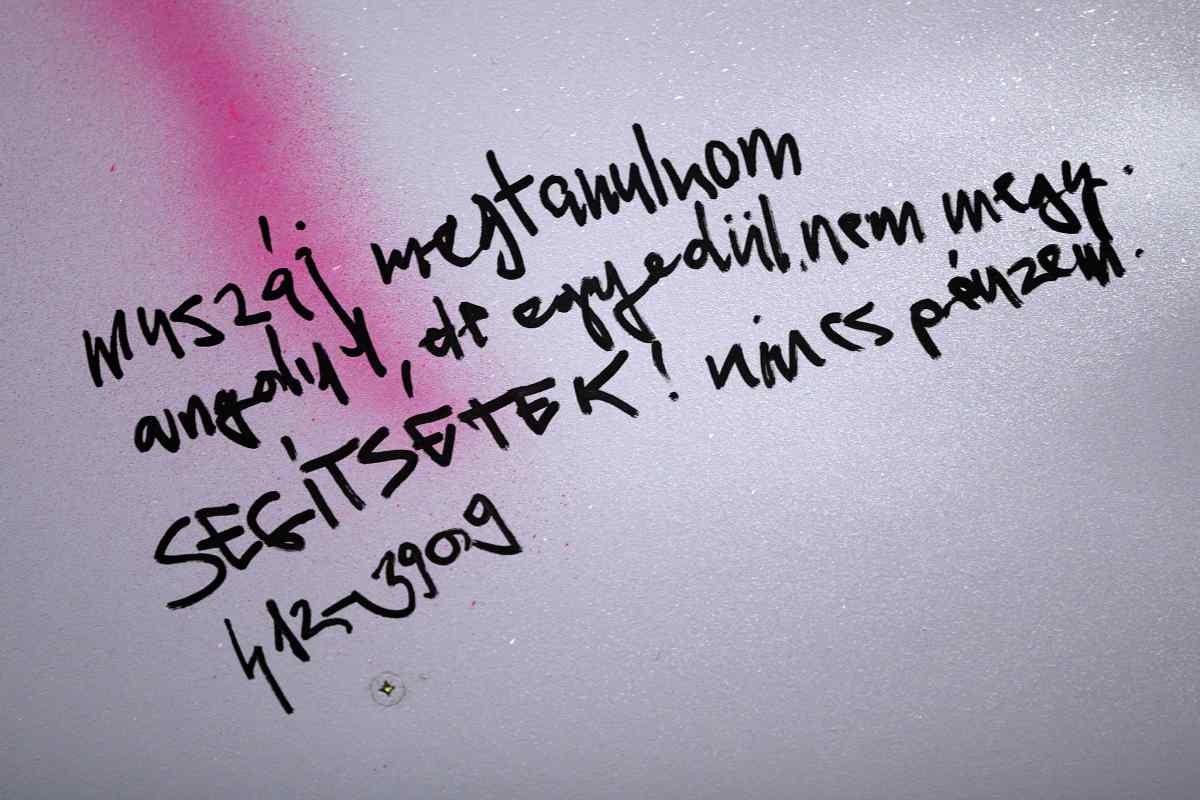 muszáj megtanulnom
angolul, de egyedül nem megy.
SEGÍTSÉTEK! nincs pénzem.
412-3909